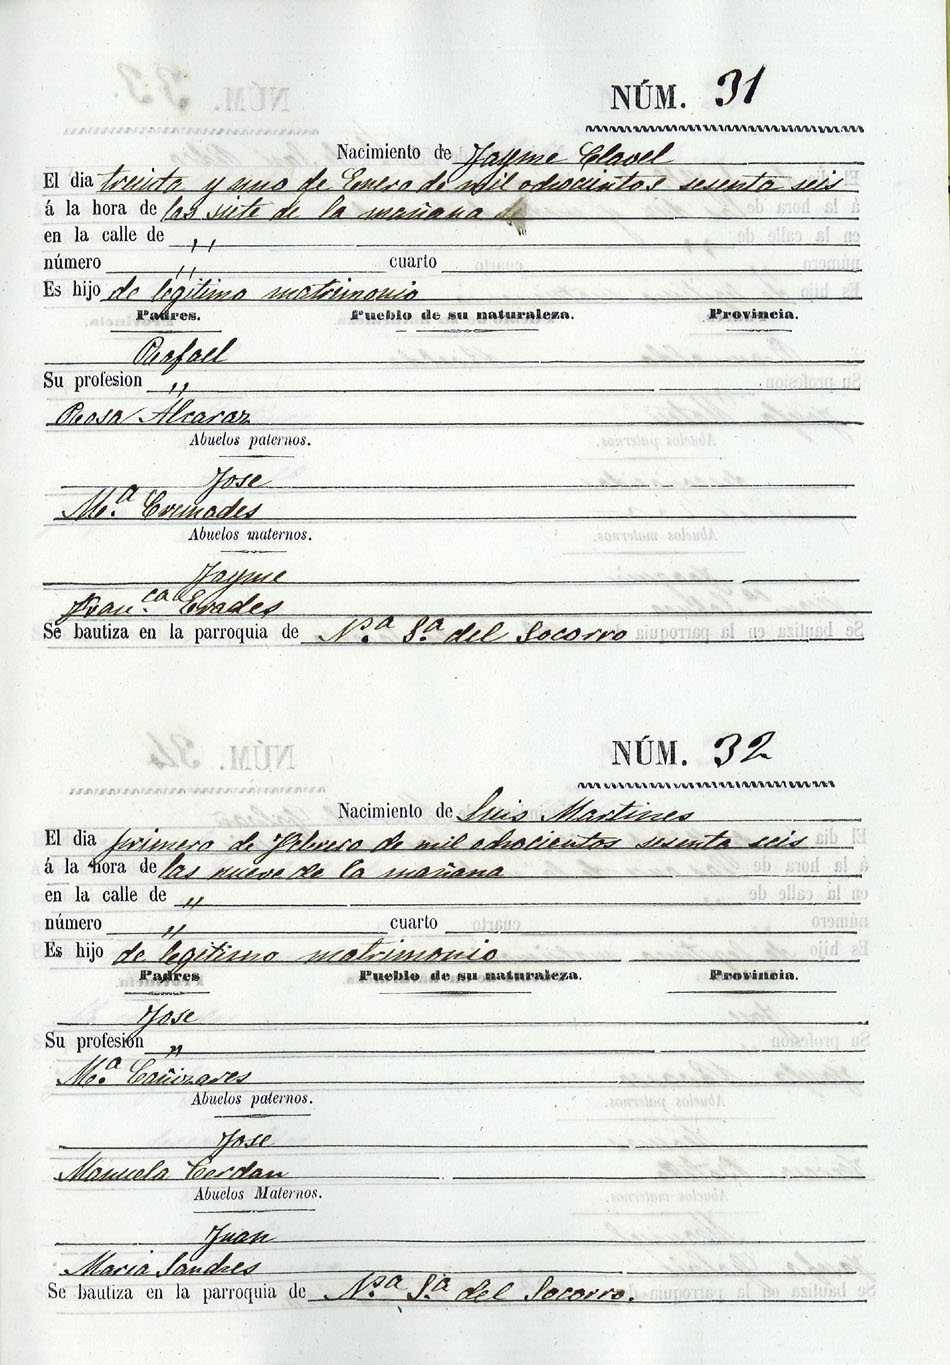 NÚM. 31
Nacimiento de Jayme Clavel
El dia treinta y uno de Enero de mil ochocientos sesenta seis
á la hora de las siete de la mañana
en la calle de ,,
número ,, cuarto
Es hijo de legitimo matrimonio
Padres. Pueblo de su naturaleza. Provincia.
Rafael
Su profesion ,,
Rosa Alcaraz
Abuelos paternos.
Jose
M.ª Cremades
Abuelos maternos.
Jayme
Fran.ca Erades
Se bautiza en la parroquia de N.ª S.ª del Socorro
NÚM. 32
Nacimiento de Luis Martines
El dia primero de Febrero de mil ochocientos sesenta seis
á la hora de las nueve de la mañana
en la calle de ,,
número ,, cuarto
Es hijo de legitimo matrimonio
Padres Pueblo de su naturaleza. Provincia.
Jose
Su profesión ,,
M.ª Cañizares
Abuelos paternos.
Jose
Manuela Cerdan
Abuelos Maternos.
Juan
Maria Sandres
Se bautiza en la parroquia de N.ª S.ª del Socorro.